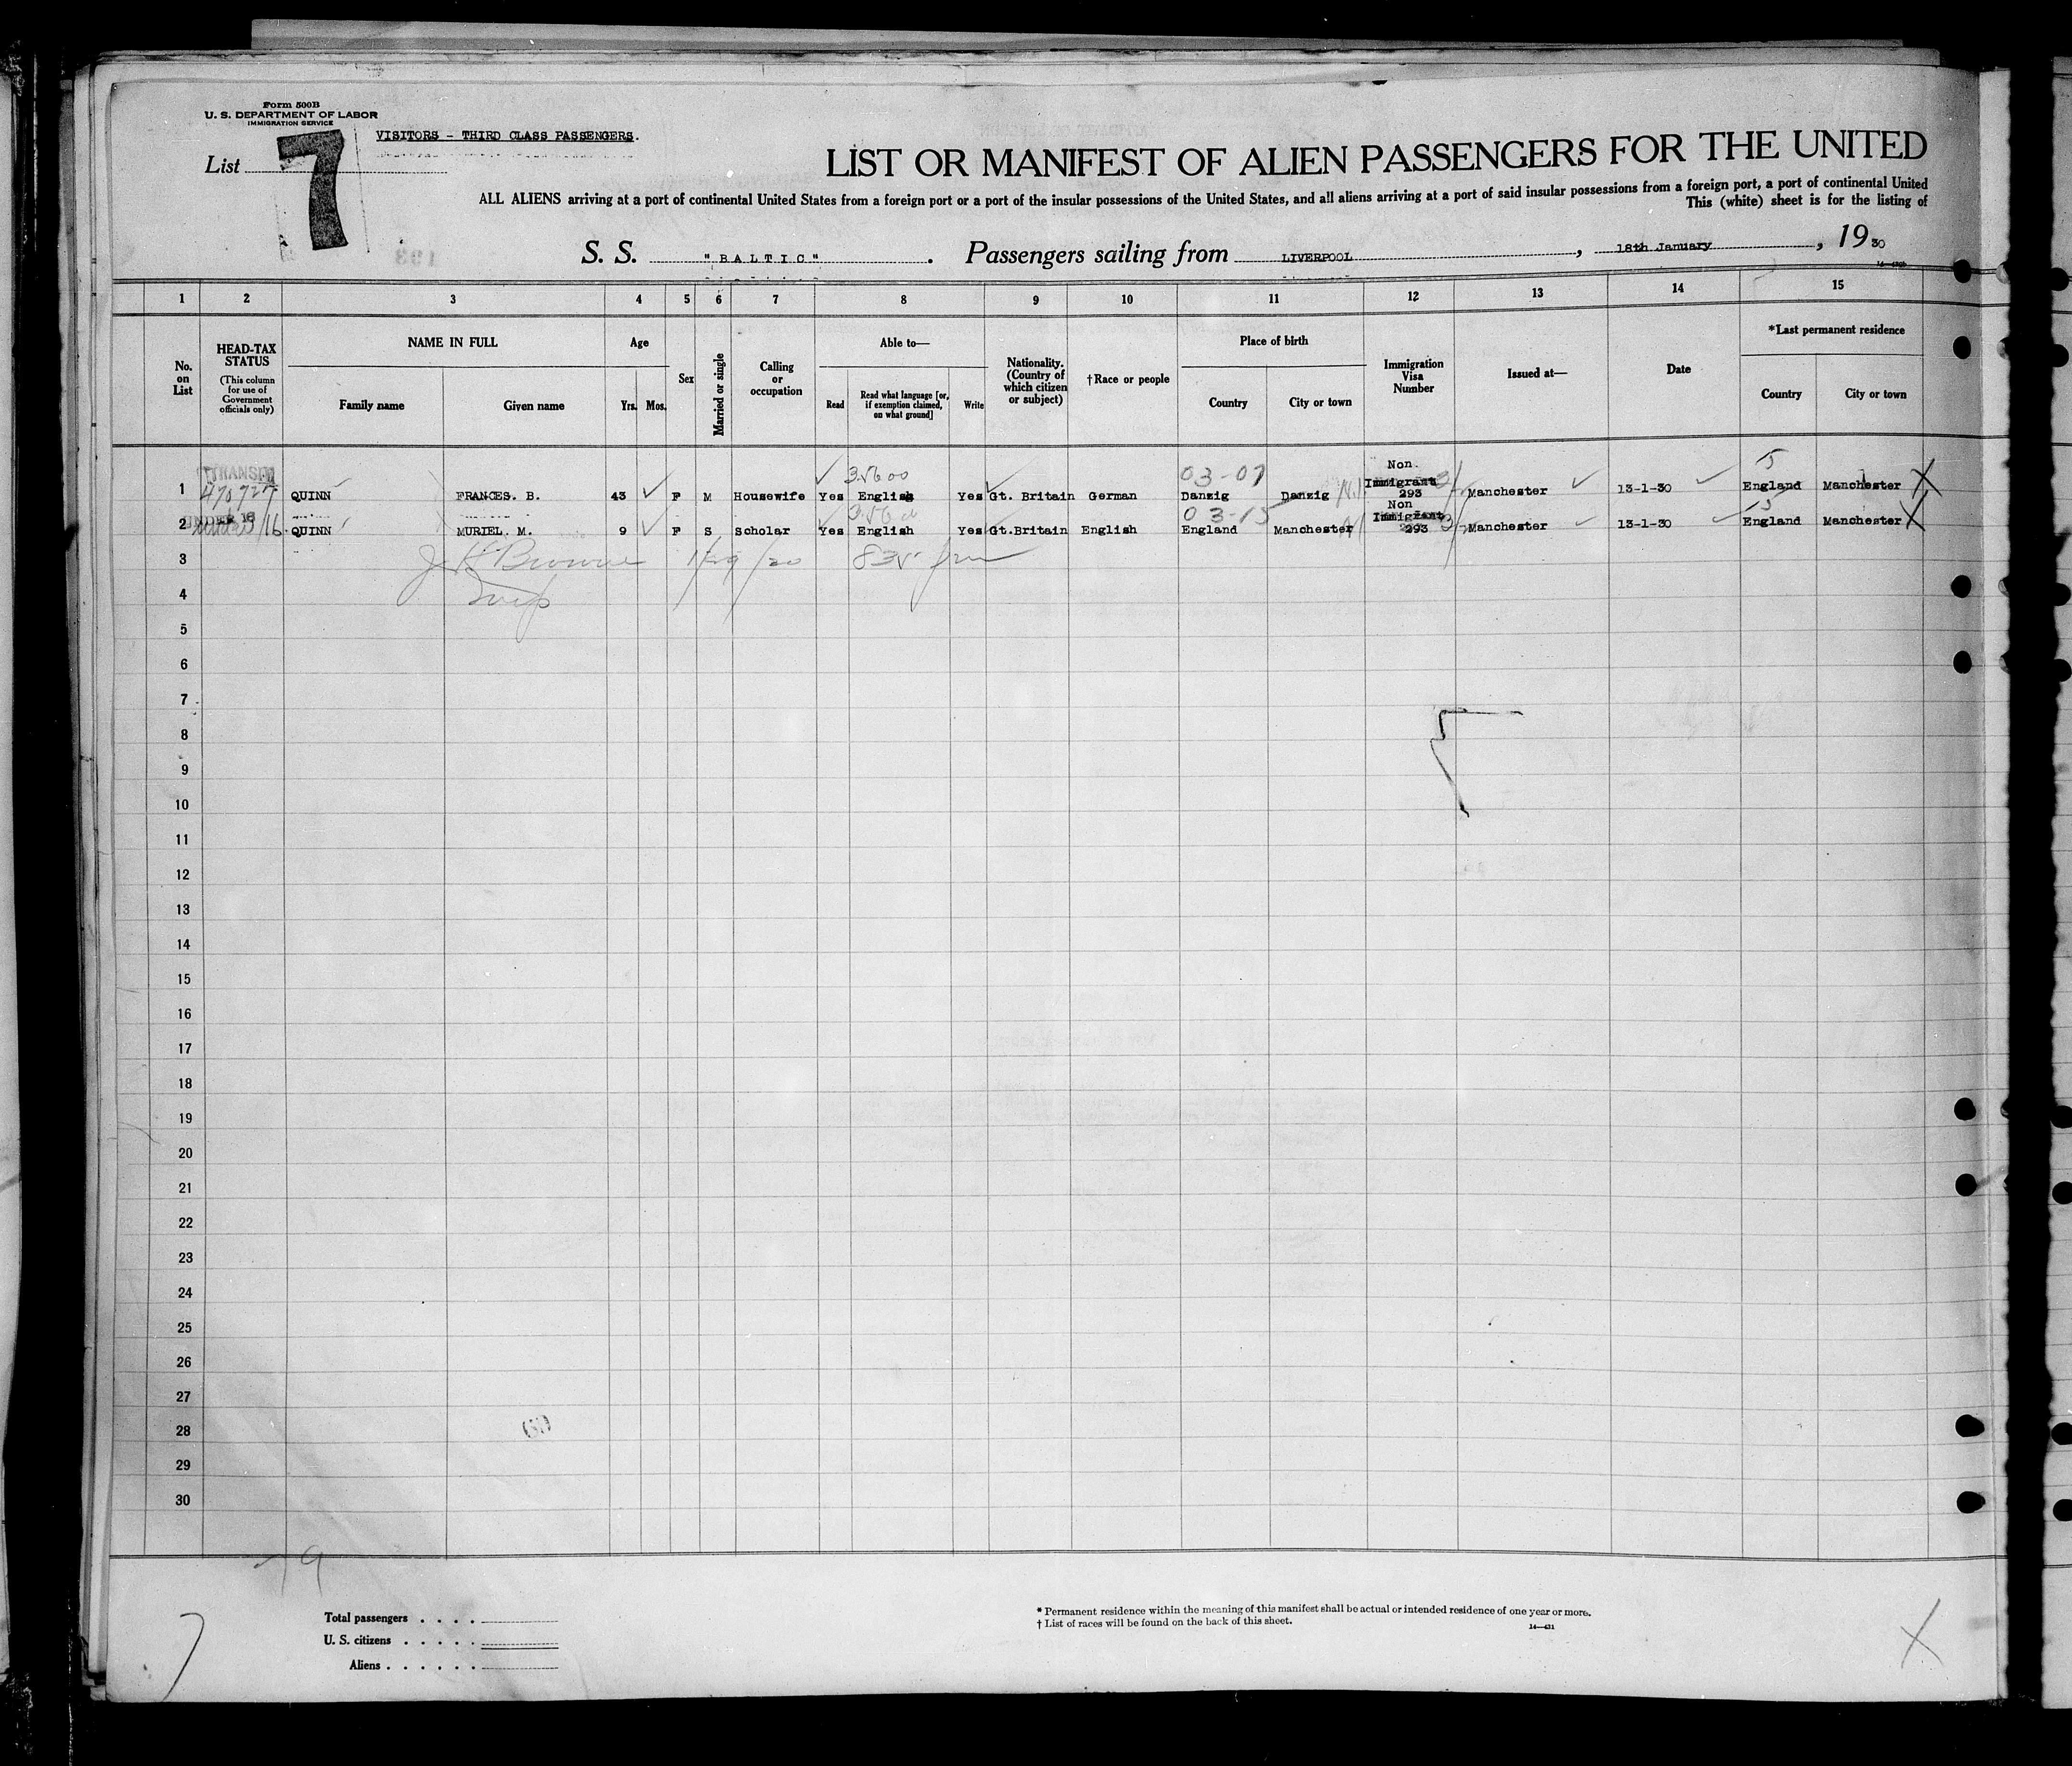 Form 500B
U. S. DEPARTMENT OF LABOR
IMMIGRATION SERVICE
VISITORS - THIRD CLASS PASSENGERS.
List 7
LIST OR MANIFEST OF ALIEN PASSENGERS FOR THE UNITED
ALL ALIENS arriving at a port of continental United States from a foreign port or a port of the insular possessions of the United States, and all aliens arriving at a port of said insular possessions from a foreign port, a port of continental United
This (white) sheet is for the listing of
S. S. "BALTIC". Passengers sailing from LIVERPOOL, 18th January, 1930
1 2 3 4 5 6 7 8 9 10 11 12 13 14 15
No. on List
HEAD-TAX STATUS (This column for use of Government officials only)
NAME IN FULL
Family name
Given name
Age
Yrs. Mos.
Sex
Married or single
Calling or occupation
Able to—
Read
Read what language [or, if exemption claimed, on what ground]
Write
Nationality. (Country of which citizen or subject)
†Race or people
Place of birth
Country
City or town
Immigration Visa Number
Issued at—
Date
*Last permanent residence
Country
City or town
TRANSIT 35600 03-07 Non 15
1 470727 QUINN FRANCES. B. 43 F M Housewife Yes English Yes Gt. Britain German Danzig Danzig Immigrant 293 Manchester 13-1-30 England Manchester X
UNDER 16 03-15 Non 15
2 QUINN MURIEL. M. 9 F S Scholar Yes English Yes Gt.Britain English England Manchester Immigrant 293 Manchester 13-1-30 England Manchester X
3 Browne 835
4 Insp
5
6
7
8
9
10
11
12
13
14
15
16
17
18
19
20
21
22
23
24
25
26
27
28
29
30
Total passengers . . . .
U. S. citizens . . . . .
Aliens . . . . . .
* Permanent residence within the meaning of this manifest shall be actual or intended residence of one year or more.
† List of races will be found on the back of this sheet.
14—431
X